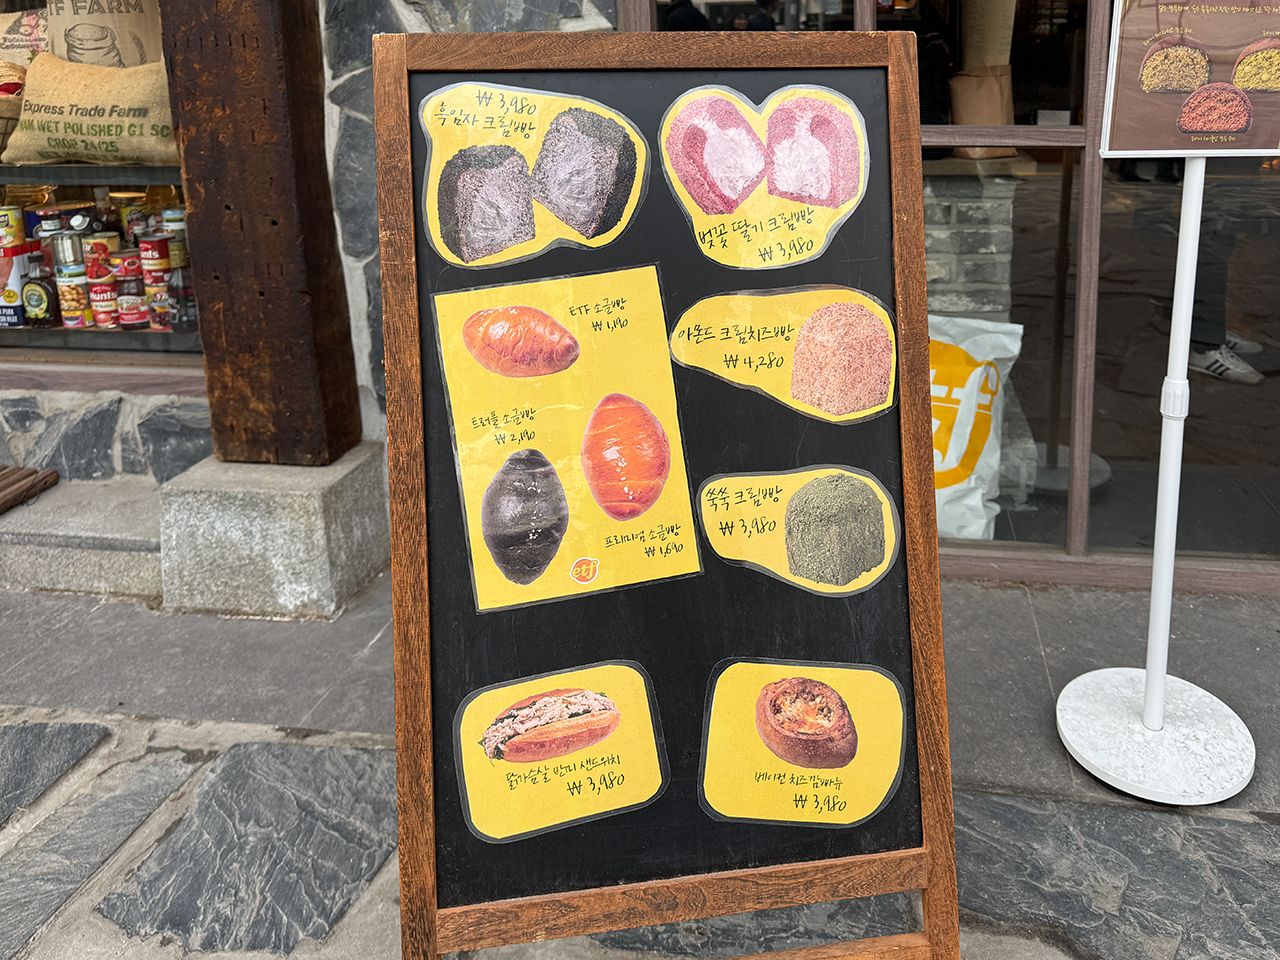 FARM
Express Trade Farm
WET POLISHED G1 SC
CROP 24/25
Hunt's
₩ 3,980
흑임자 크림빵
벚꽃 딸기 크림빵
₩ 3,980
ETF 소금빵
₩ 1,190
트러플 소금빵
₩ 2,190
프리미엄 소금빵
₩ 1,690
etf
아몬드 크림치즈빵
₩ 4,280
쑥쑥 크림빵
₩ 3,980
닭가슴살 반미 샌드위치
₩ 3,980
베이컨 치즈깜빠뉴
₩ 3,980